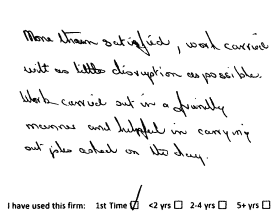 More than satisfied, work carried
with as little disruption as possible.
Work carried out in a friendly
manner and helpful in carrying
out jobs asked on the day.
I have used this firm: 1st Time ☑ <2 yrs ☐ 2-4 yrs ☐ 5+ yrs ☐